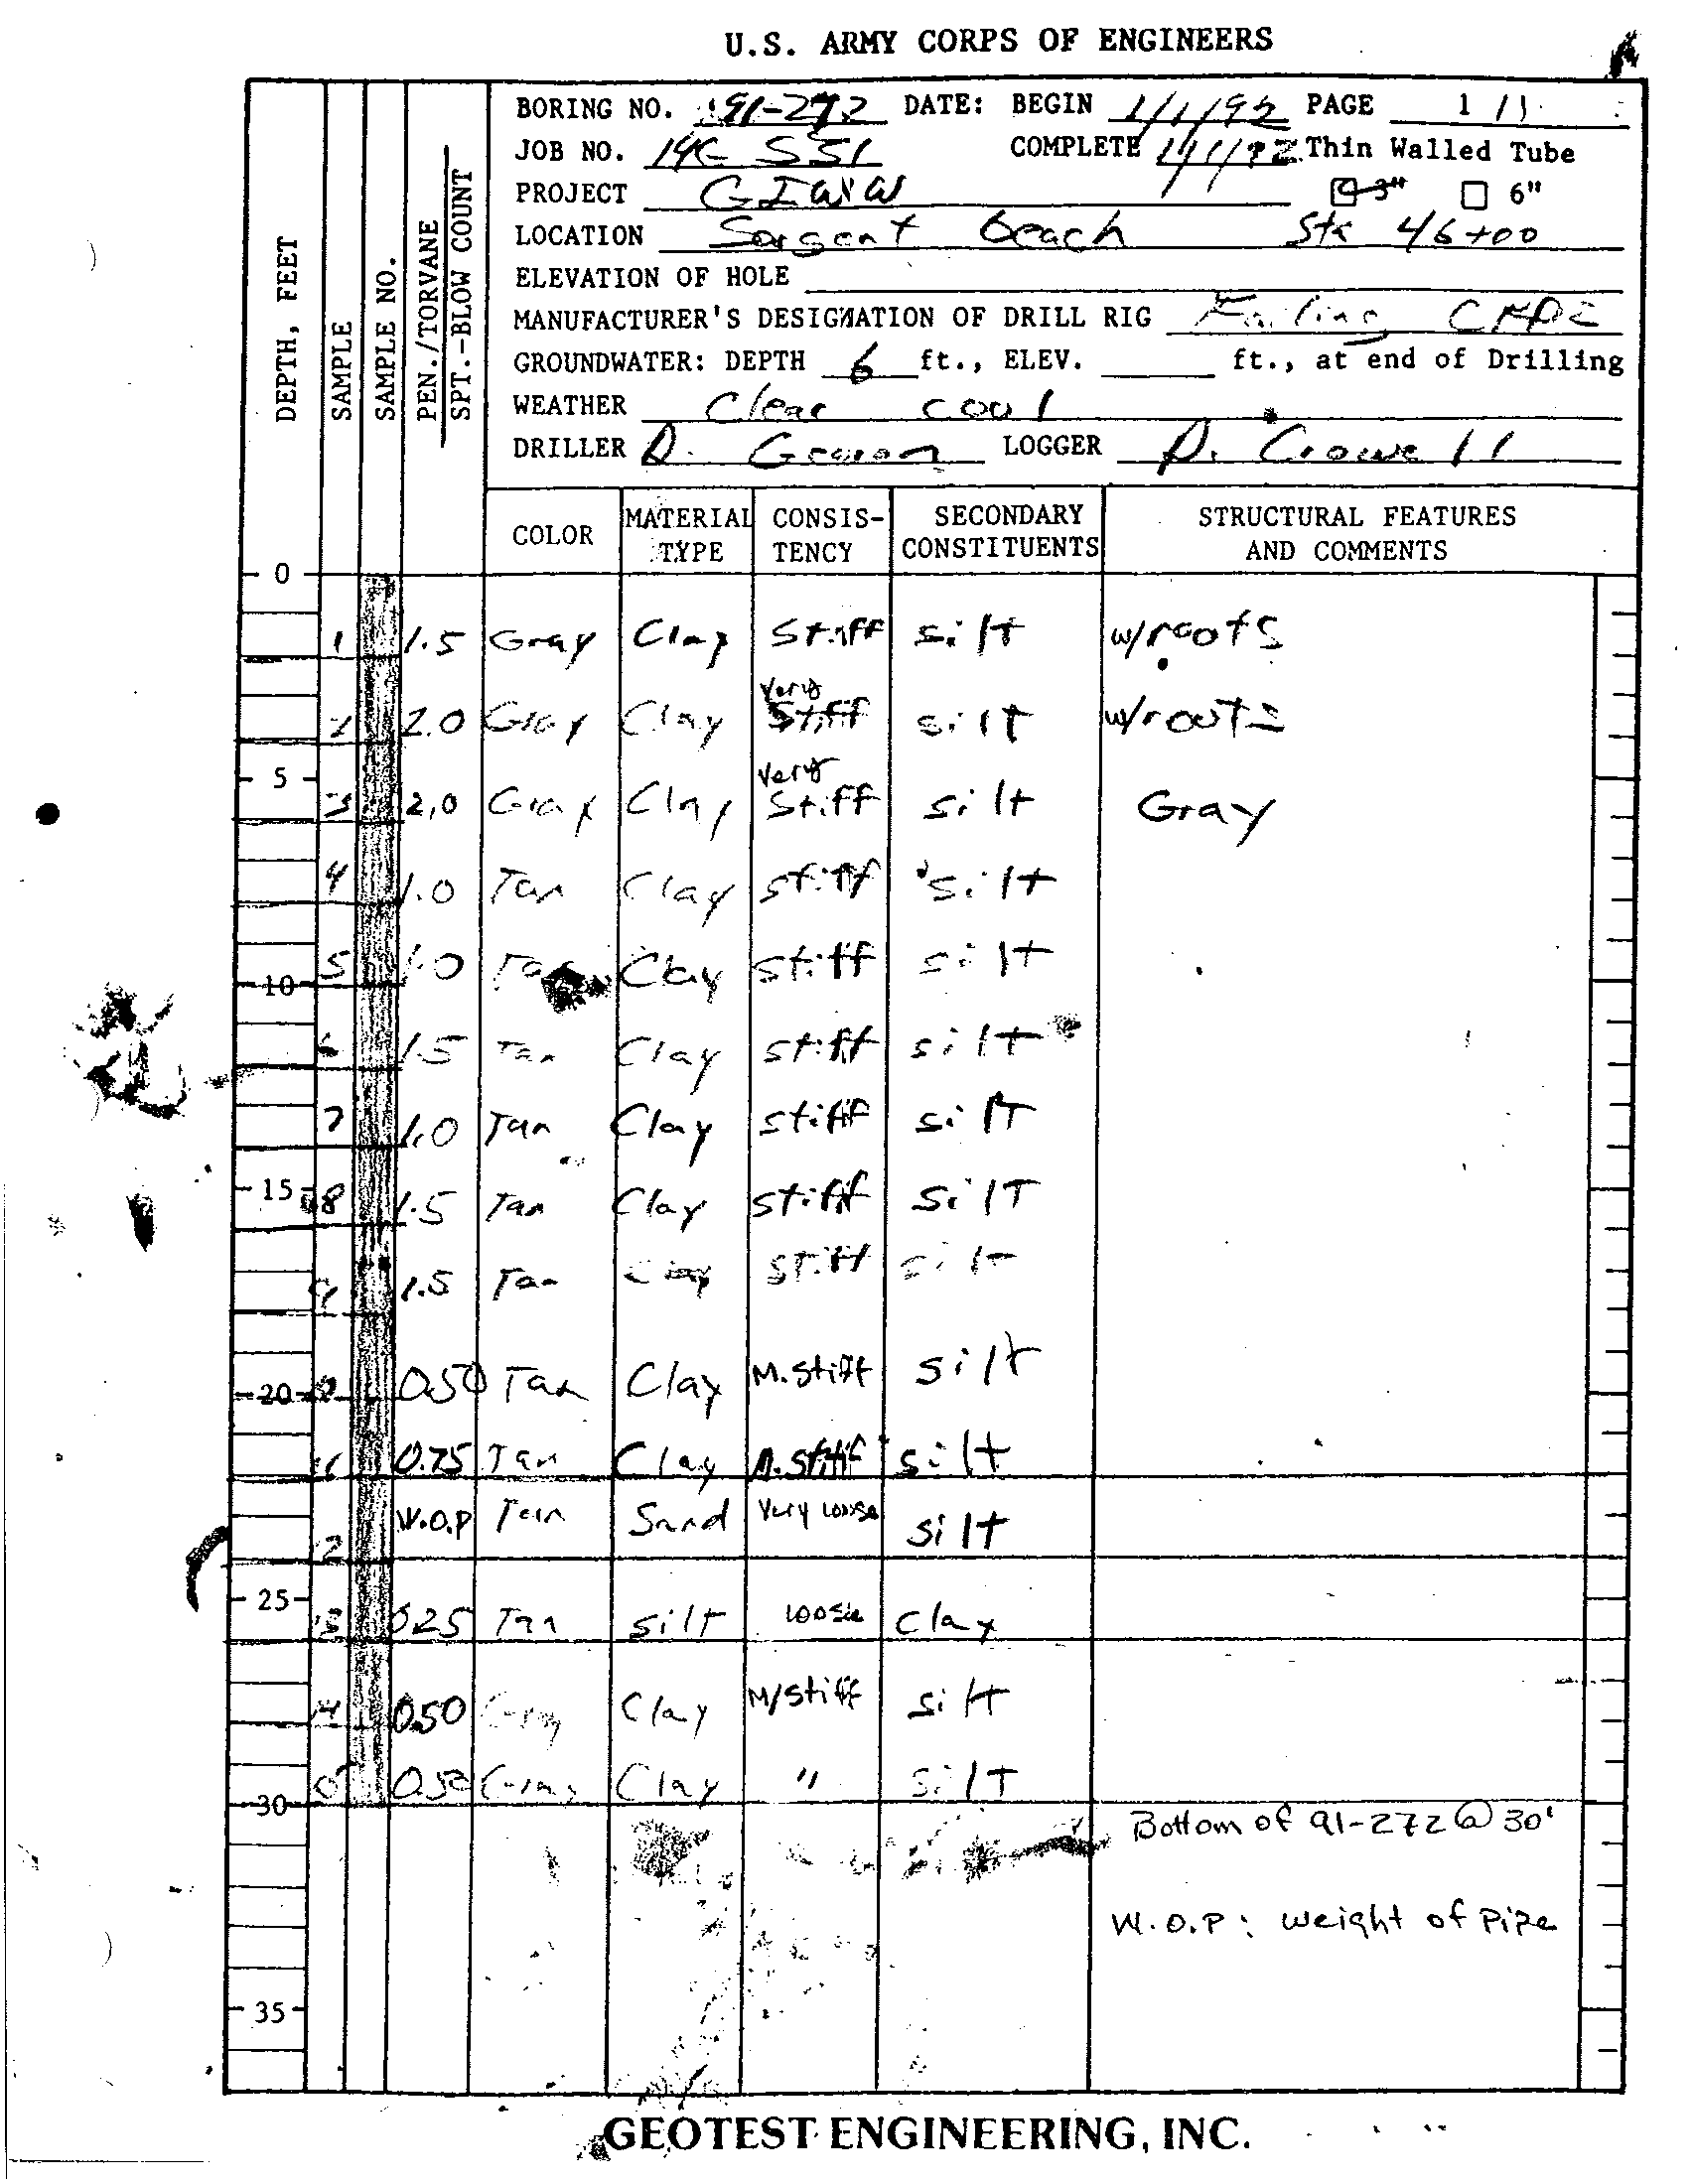 U.S. ARMY CORPS OF ENGINEERS
BORING NO. 91-272 DATE: BEGIN 1/1/92 PAGE 1 / 1
JOB NO. 14G SS1 COMPLETE 1/1/92 Thin Walled Tube
PROJECT GIWW 3" 6"
LOCATION Sargent beach Sta 46+00
ELEVATION OF HOLE
MANUFACTURER'S DESIGNATION OF DRILL RIG Failing
GROUNDWATER: DEPTH 6 ft., ELEV. ft., at end of Drilling
WEATHER Clear cool
DRILLER D. LOGGER D. Crowell
DEPTH, FEET
SAMPLE
SAMPLE NO.
PEN./TORVANE
SPT.-BLOW COUNT
COLOR MATERIAL TYPE CONSIS-TENCY SECONDARY CONSTITUENTS STRUCTURAL FEATURES AND COMMENTS
0
1 1.5 Gray Clay Stiff silt w/roots
2 2.0 Gray Clay Very Stiff silt w/roots
5
3 2.0 Gray Clay Very Stiff silt Gray
4 1.0 Tan Clay stiff silt
5 1.0 Tan Clay stiff silt
10
6 1.5 Tan Clay stiff silt
7 1.0 Tan Clay stiff silt
15
8 1.5 Tan Clay stiff silt
9 1.5 Tan Clay stiff silt
20 0.50 Tan Clay M. stiff silt
11 0.75 Tan Clay M. stiff silt
12 W.O.P Tan Sand Very Loose silt
25
13 0.25 Tan silt Loose Clay
14 0.50 Gray Clay M/stiff silt
15 0.50 Gray Clay " silt
30
Bottom of 91-272 @ 30'
W.O.P: weight of pipe
35
GEOTEST ENGINEERING, INC.